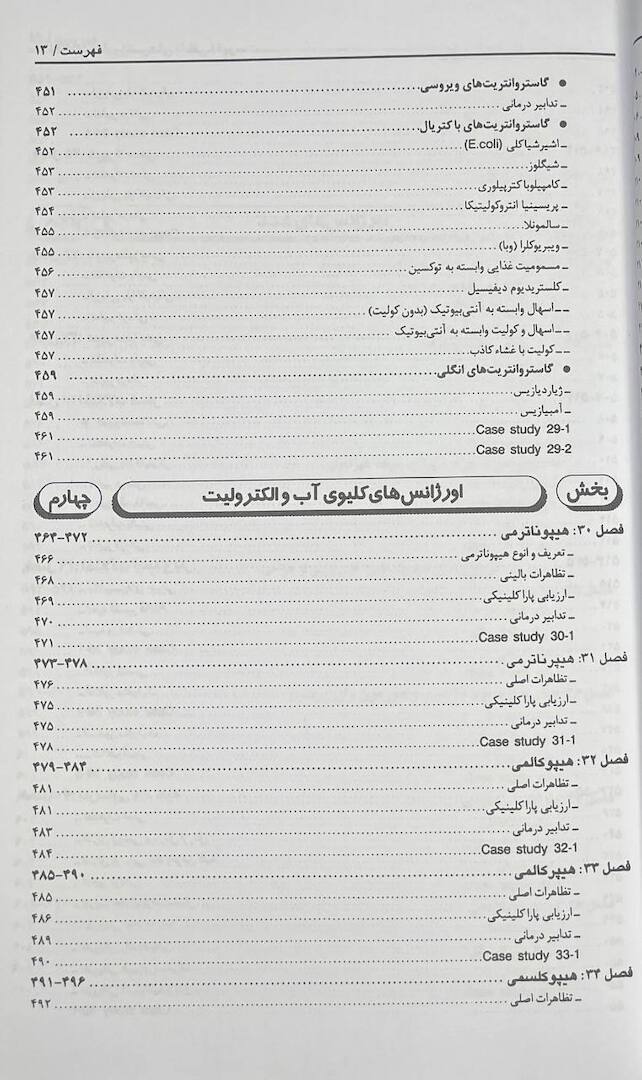 فهرست / ۱۳
● گاستروانتریت‌های ویروسی ........ ۴۵۱
ـ تدابیر درمانی ........ ۴۵۲
● گاستروانتریت‌های باکتریال ........ ۴۵۲
ـ اشیرشیاکلی (E.coli) ........ ۴۵۲
ـ شیگلوز ........ ۴۵۳
ـ کامپیلوباکترپیلوری ........ ۴۵۳
ـ پرسینیا انتروکولیتیکا ........ ۴۵۴
ـ سالمونلا ........ ۴۵۵
ـ ویبریوکلرا (وبا) ........ ۴۵۵
ـ مسمومیت غذایی وابسته به توکسین ........ ۴۵۶
ـ کلستریدیوم دیفیسیل ........ ۴۵۷
ــ اسهال وابسته به آنتی‌بیوتیک (بدون کولیت) ........ ۴۵۷
ــ اسهال و کولیت وابسته به آنتی‌بیوتیک ........ ۴۵۷
ــ کولیت با غشاء کاذب ........ ۴۵۷
● گاستروانتریت‌های انگلی ........ ۴۵۹
ـ ژیاردیازیس ........ ۴۵۹
ـ آمبیازیس ........ ۴۵۹
Case study 29-1 ........ ۴۶۱
Case study 29-2 ........ ۴۶۱
بخش چهارم اورژانس‌های کلیوی آب و الکترولیت
فصل ۳۰: هیپوناترمی ........ ۴۶۴-۴۷۲
ـ تعریف و انوع هیپوناترمی ........ ۴۶۶
ـ تظاهرات بالینی ........ ۴۶۸
ـ ارزیابی پاراکلینیکی ........ ۴۶۹
ـ تدابیر درمانی ........ ۴۷۰
Case study 30-1 ........ ۴۷۱
فصل ۳۱: هیپرناترمی ........ ۴۷۳-۴۷۸
ـ تظاهرات اصلی ........ ۴۷۶
ـ ارزیابی پاراکلینیکی ........ ۴۷۵
ـ تدابیر درمانی ........ ۴۷۵
Case study 31-1 ........ ۴۷۸
فصل ۳۲: هیپوکالمی ........ ۴۷۹-۴۸۴
ـ تظاهرات اصلی ........ ۴۸۱
ـ ارزیابی پاراکلینیکی ........ ۴۸۱
ـ تدابیر درمانی ........ ۴۸۳
Case study 32-1 ........ ۴۸۴
فصل ۳۳: هیپرکالمی ........ ۴۸۵-۴۹۰
ـ تظاهرات اصلی ........ ۴۸۵
ـ ارزیابی پاراکلینیکی ........ ۴۸۶
ـ تدابیر درمانی ........ ۴۸۹
Case study 33-1 ........ ۴۹۰
فصل ۳۴: هیپوکلسمی ........ ۴۹۱-۴۹۶
ـ تظاهرات اصلی ........ ۴۹۲